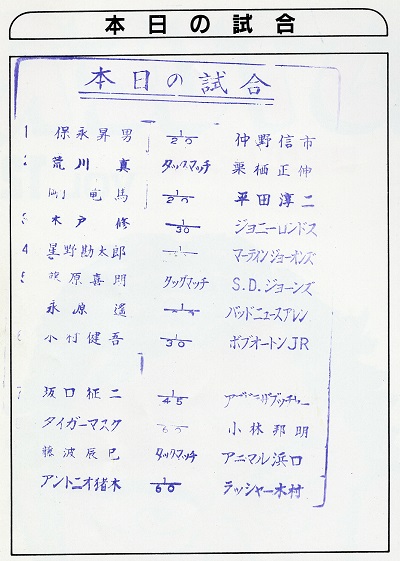 本日の試合
本日の試合
1 保永昇男 1/20 仲野信市
2 荒川 真 タッグマッチ 栗栖正伸
剛 竜馬 1/20 平田淳二
3 木戸 修 1/30 ジョニーロンドス
4 星野勘太郎 マーティンジョーンズ
5 藤原喜明 タッグマッチ S.D.ジョーンズ
永原 遥 バッドニュースアレン
木村健吾 1/30 ボブオートンJR
7 坂口征二 1/45 アブドーラザブッチャー
タイガーマスク 小林邦明
藤波辰巳 タッグマッチ アニマル浜口
アントニオ猪木 1/60 ラッシャー木村